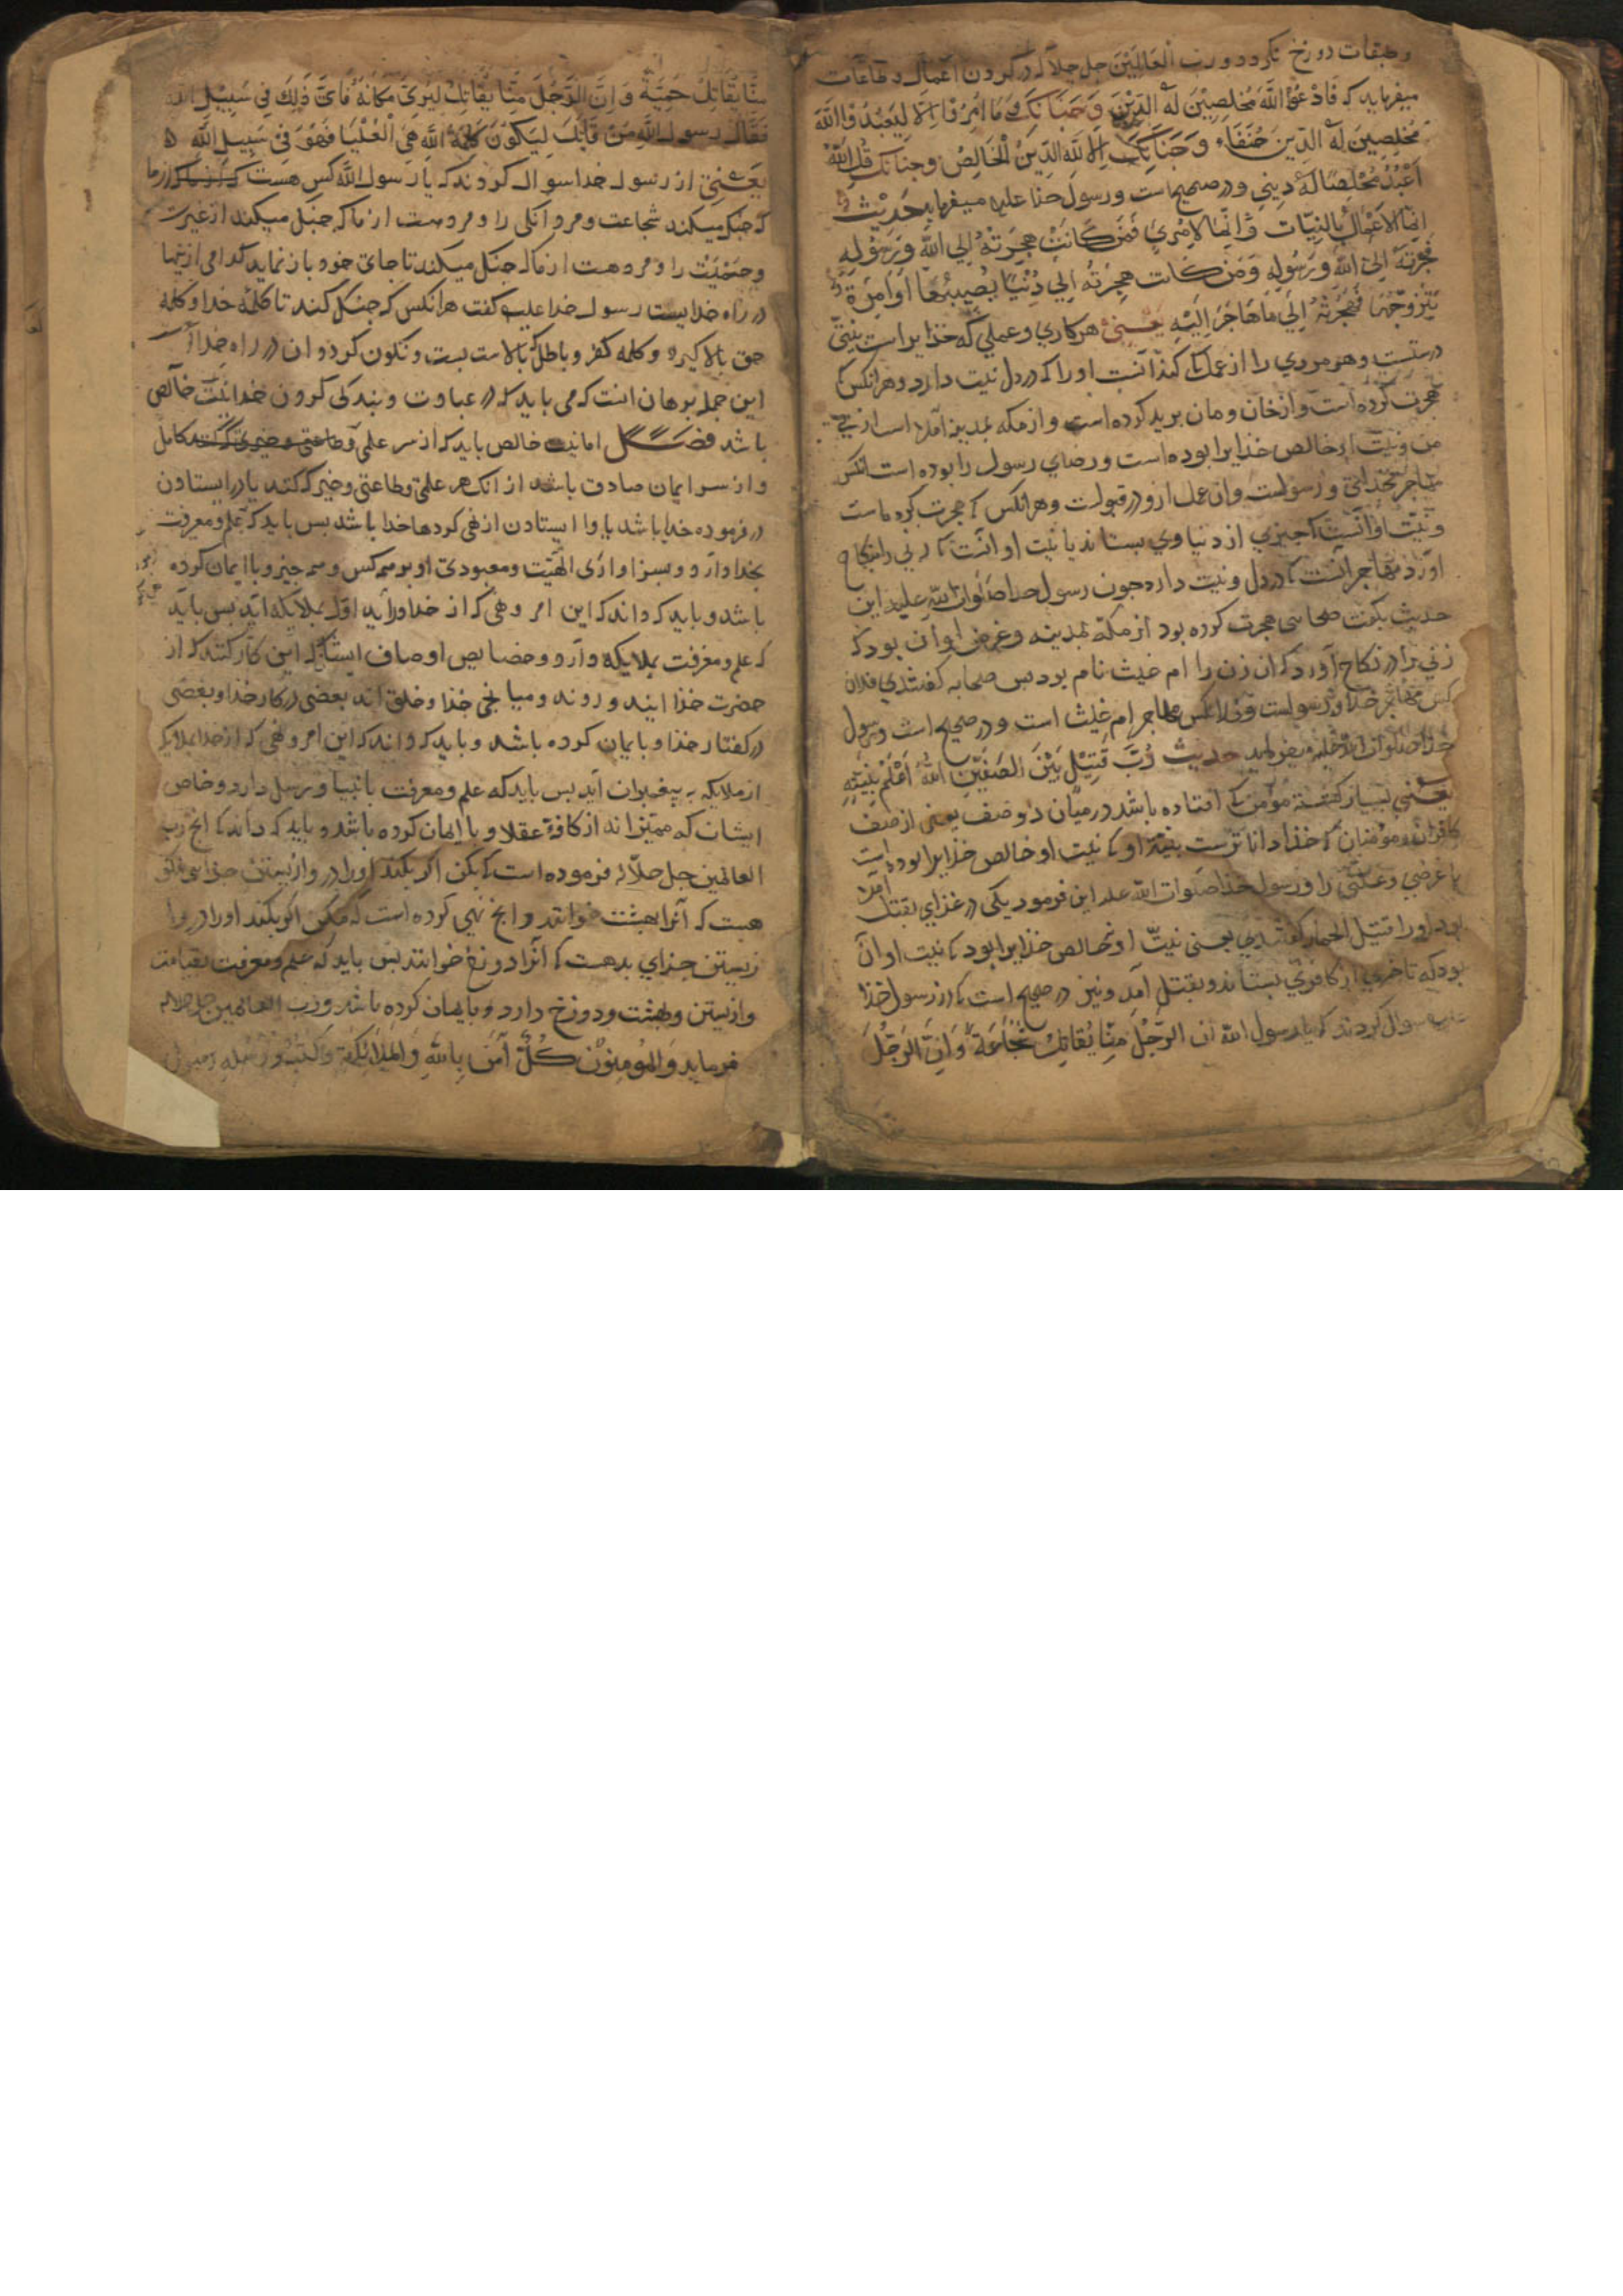 وطبقات دوزخ نکردد ورب العالمین جل جلاله در کردن اعمال وطاعات
میفرماید که فَادْعُوا اللَّهَ مُخْلِصِیْنَ لَهُ الدِّیْنَ وَجَنَانَکِ وَمَا اُمِرُوْا اِلَّا لِیَعْبُدُوْا اللَّهَ
مُخْلِصِینَ لَهُ الدِّینَ حُنَفَاءَ وَجَنَانَکِ اَلَا لِلَّهِ الدِّیْنُ الْخَالِصُ وجنانک قُلِ اللَّهَ
اَعْبُدُ مُخْلِصًا لَهُ دِیْنِي ودر صحیح است ورسول خدا علیه میفرماید حَدِیْث
اِنَّمَا الْاَعْمَالُ بِالنِّیَّات وَاِنَّمَا لِامْرِيٍ فَمَنْ کَانَتْ هِجْرَتُهُ اِلَي اللَّهِ وَرَسُوْلِهِ
فَهِجْرَتُهُ اِلَي اللَّهِ وَرَسُولِهِ وَمَنْ کَانَت هِجْرَتُهُ اِلَي دُنْیَا یُصِیْبُهَا اَوْ امْرَةٍ
یَتَزَوَّجُهَا فَهِجْرَتُهُ اِلَي مَا هَاجَرَ اِلَیْهِ یَعْنِي هر کاري وعملي که خذایراست بنیتی
درستست وهر مردي را از عمل آنست اورا که در دل نیت دارد وهر انکس که
هجرت کرده است وازخان ومان برید کرده است وازمکه بمدینه آمده است از پی
من ونیت او خالص خذایرا بوده است ورضاي رسول را بوده است انکس
مهاجر بخدای ورسولست وان عمل ازو در قبولست وهر انکس که هجرت کرده است
ونیّت او آنست که چیزي از دنیا وي بستاند یا نیت او انست که زنی را بنکاح
آورد مهاجر آنست که در دل ونیت دارد جون رسول خدا صلوات الله علیه این
حدیث بکفت صحابی هجرت کرده بود از مکّه بمدینه وغرض او آن بود که
زني را در نکاح آورد که ان زن را ام غیث نام بود بس صحابه کفتندي فلان
کس مهاجر خدا ورسولست وفلانکس مهاجر ام غیث است ودر صحیح است رسول
خدا صلوات الله علیه میفرماید حدیث رُبَّ قَتِیْلٍ بَیْنَ الصَّفَّیْنِ اللهُ اَعْلَمُ بِنِیَّتِهِ
یَعْنِي بسیار کشته مؤمن که افتاده باشد در میان دو صف یعنی از صف
کافران ومؤمنان که خذا داناترست بنیّة او که نیت او خالص خذایرا بوده است
یا غرضي وعلتي را ورسول خذا صلوات الله علیه این فرمود یکی در غذاي بقتل آمده
بود اورا قتیل الحمار کفتندي یعنی نیتّ او نه خالص خذایرا بود که نیت او آن
بود که تا خري از کافري بستاند وبقتل آمد ونیز در صحیح است که از رسول خذا
علیه سوال کردند که یا رسول الله ان الرَّجُلَ مِنَّا یُقَاتِلُ شُجَاعَةً وَاِنَّ الرَّجُلَ
مِنَّا یُقَاتِلُ حَمِیَّةً وَاِنَّ الرَّجُلَ مِنَّا یُقَاتِلُ لِیُرَيَ مَکَانَهُ فَاَيُّ ذَلِکَ فِي سَبِیْلِ اللهِ
فَقَالَ رسول اللَّهِ مَنْ قَاتَلَ لِیَکُوْنَ کَلِمَةُ اللهِ هِيَ الْعُلْیَا فَهُوَ فِي سَبِیْلِ اللَّهِ
یَعْنِي از رسول خدا سوال کردند که یا رسول الله کس هست که از ما
که جنک میکند شجاعت ومردانکی را ومرد هست از ما که جنک میکند از غیرت
وحَمْیَّتْ را ومرد هست از ما که جنک میکند تا جاي خود باز نماید کدامی ازینها
در راه خدایست رسول خدا علیه کفت هرانکس که جنک کند تا کلمه خدا وکلمه
حق بالا کیرد وکلمه کفر وباطل که بالاست بست ونکون کردد ان در راه خداست
این جمله برهان انست که می باید که در عبادت وبندکی کردن خدا نیّت خالص
باشد فصل اما نیت خالص باید که از سر علمی وطاعتی وخیری کند کامل
واز سر ایمان صادق باشد از انک هر علمی وطاعتی وخیر که کند یا در ایستادن
در فرموده خدا باشد یا وا ایستادن از نهی کردها خدا باشد بس باید که علم ومعرفت
بخدا وآرد وبسزاواري الهیّت ومعبودي او بر همه کس وهمه جیز وبا ایمان کرده
باشد وباید که داند که این امر ونهی که از خدا در آید اول بملایکه آید بس باید
که علم ومعرفت بملایکه وآرد وخصایص اوصاف ایشان که این کار کنند که از
حضرت خذا ایند وروند ومیانجی خذا وخلق اند بعضی در کار خذا وبعضی
در کفتار خذا وبا ایمان کرده باشد وباید که داند که این امر ونهی که از خدا بملایکه
از ملایکه به پیغمبران آید بس باید که علم ومعرفت بانبیا ورسل دارد وخاص
ایشان که ممیّز اند از کافّهٔ عقلا وبا ایمان کرده باشد وباید که داند که انج رب
العالمین جل جلاله فرموده است که بکن اکر بکند اورا در وازیستن جزاي نیکو
هست که آنرا بهشت خوانند وانج نهی کرده است که مکن اکر بکند اورا در وا
زیستن جزاي بد هست که آنرا دوزخ خوانند بس باید که علم ومعرفت بقیامت
وازیستن وبهشت ودوزخ دارد وبا ایمان کرده باشد ورب العالمین جل جلاله
فرماید وَالْمُومِنُوْنَ کُلٌّ آمَنَ بِاللهِ وَالْمَلَائِکَةِ وَکُتُبِهِ وَرُسُلِهِ